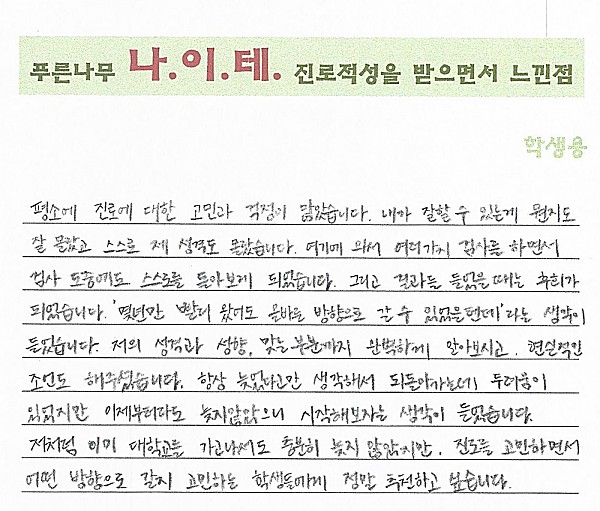 푸른나무 나.이.테. 진로적성을 받으면서 느낀점
학생용
평소에 진로에 대한 고민과 걱정이 많았습니다. 내가 잘할 수 있는게 뭔지도
잘 몰랐고 스스로 제 성격도 몰랐습니다. 여기에 와서 여러가지 검사를 하면서
검사 도중에도 스스로를 돌아보게 되었습니다. 그리고 결과를 들었을 때는 후회가
되었습니다. '몇년만 빨리 왔어도 올바른 방향으로 갈 수 있었을텐데' 라는 생각이
들었습니다. 저의 성격과 성향, 맞는 부분까지 완벽하게 알아보시고, 현실적인
조언도 해주셨습니다. 항상 늦었다고만 생각해서 되돌아가는데 두려움이
있었지만 이제부터라도 늦지않았으니 시작해보자는 생각이 들었습니다.
저처럼 이미 대학교를 가고나서도 충분히 늦지 않았지만, 진로를 고민하면서
어떤 방향으로 갈지 고민하는 학생들에게 정말 추천하고 싶습니다.